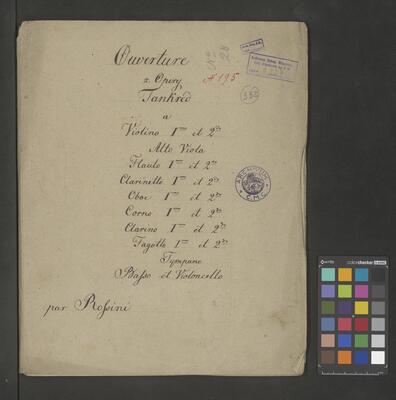 Ouverture
z Opery
Tankred
a
Violino 1mo et 2do
Alto Viola
Flauto 1mo et 2do
Clarinetto 1mo et 2do
Oboe 1mo et 2do
Corno 1mo et 2do
Clarino 1mo et 2do
Fagotto 1mo et 2do
Tympano
Basso et Violoncello
par Rossini
No 28
№ 195
ARCHIVUM
colorchecker